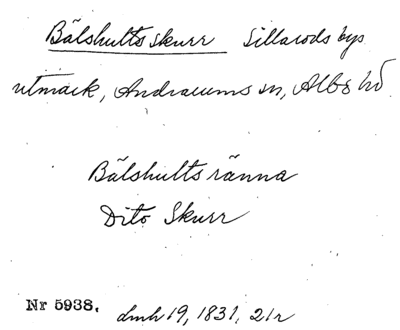 Bälshults skurr Sillarods bys
utmark, Andrarums sn, Albo hd
Bälshults ränna
Dito Skurr
Nr 5938. dmh 19, 1831, 21r